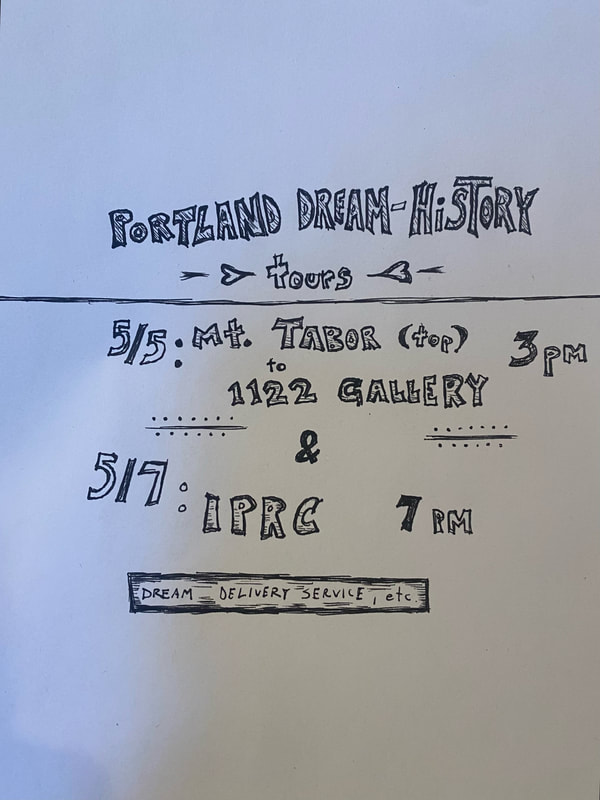 PORTLAND DREAM-HiSTORY
tours
5/5: Mt. TABOR (top) 3pm
to
1122 GALLERY
&
5/7: IPRC 7 PM
DREAM DELIVERY SERVICE, etc.